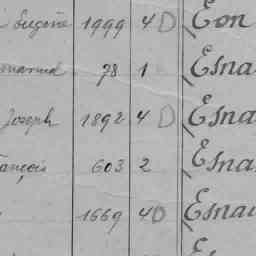 Eugène 1999 4 D Eon
Emmanuel 78 1 Esna
Joseph 1892 4 D Esna
François 603 2 Esna
1669 4 D Esna